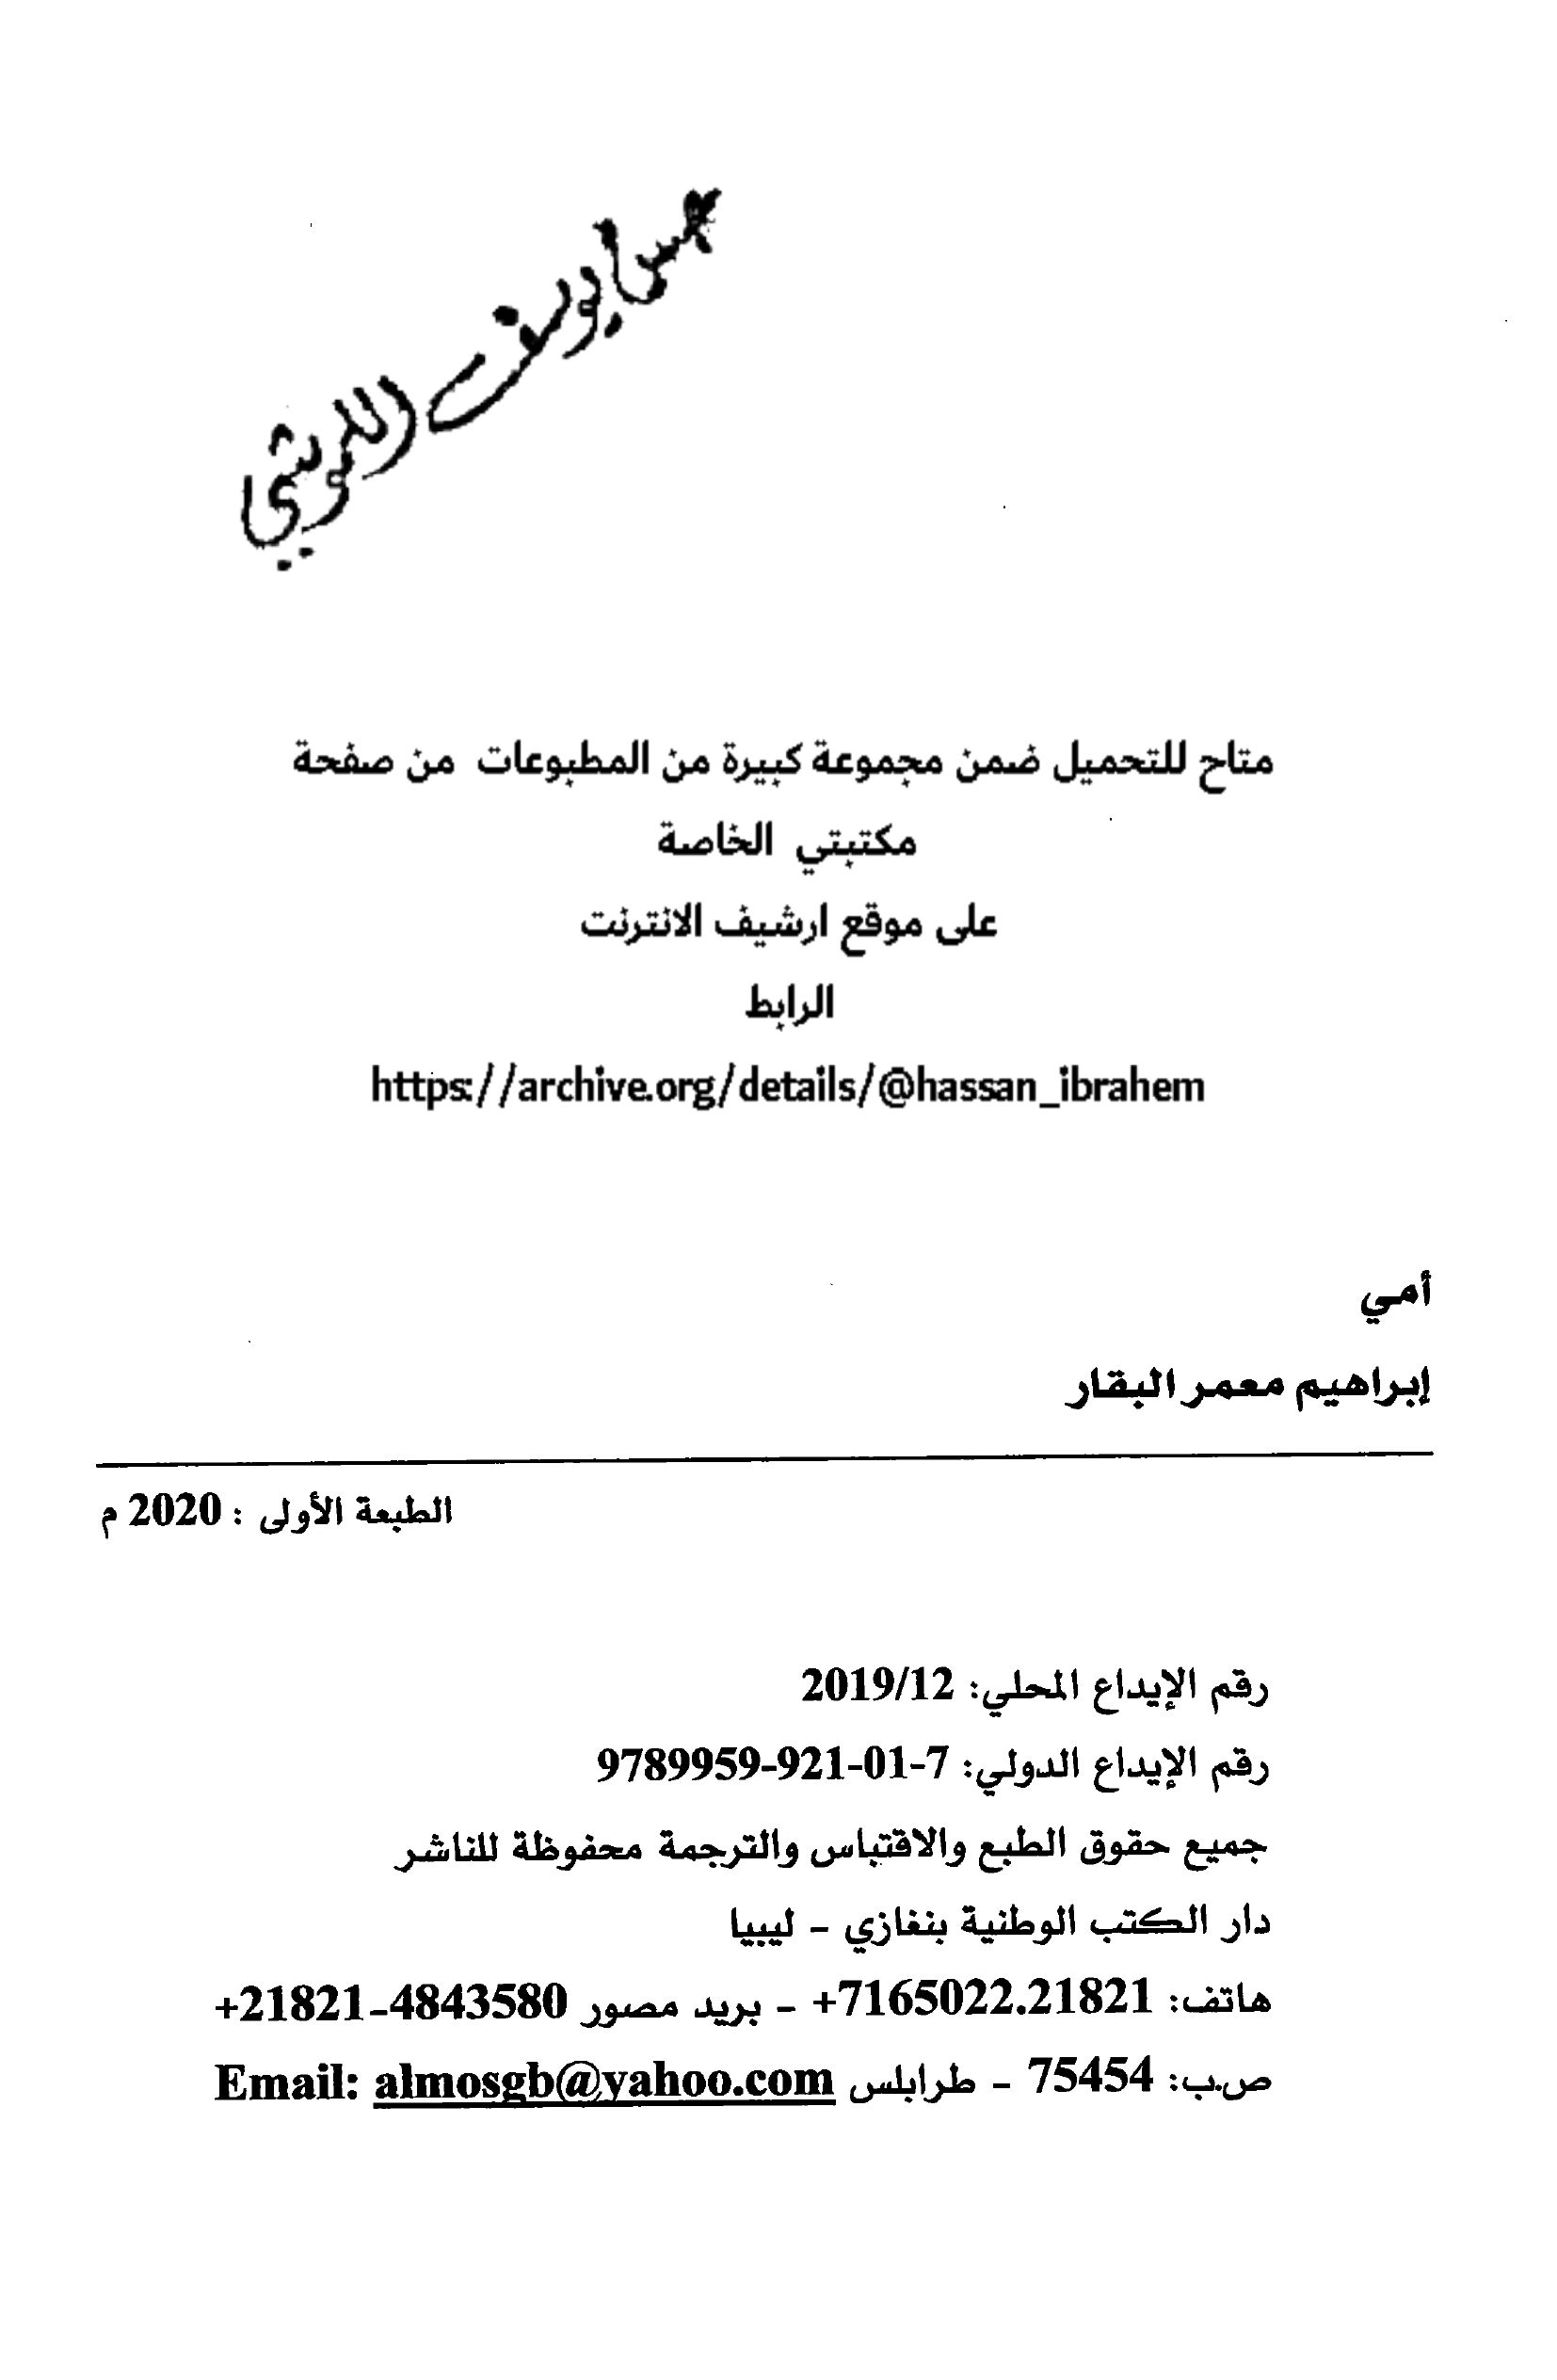 متاح للتحميل ضمن مجموعة كبيرة من المطبوعات من صفحة
مكتبتي الخاصة
على موقع ارشيف الانترنت
الرابط
https://archive.org/details/@hassan_ibrahem
أمي
إبراهيم معمر البقار
الطبعة الأولى : 2020 م
رقم الإيداع المحلي: 2019/12
رقم الإيداع الدولي: 7-01-921-9789959
جميع حقوق الطبع والاقتباس والترجمة محفوظة للناشر
دار الكتب الوطنية بنغازي - ليبيا
هاتف: 7165022.21821+ - بريد مصور 4843580-21821+
ص.ب: 75454 - طرابلس Email: almosgb@yahoo.com